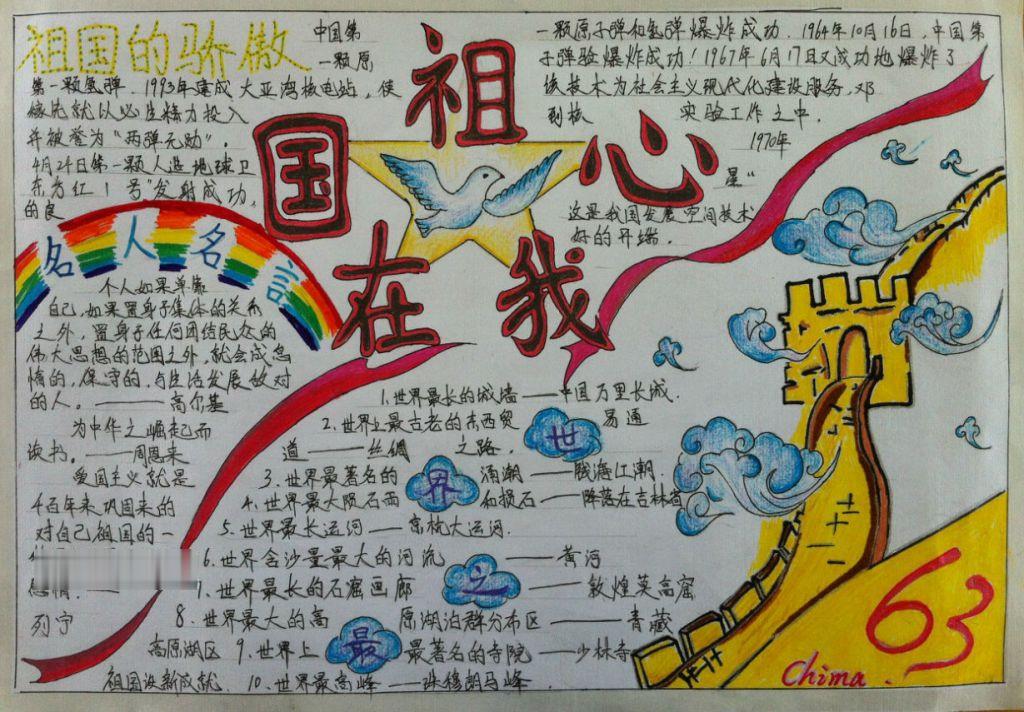 祖国的骄傲
中国第
一颗原
第一颗氢弹. 1993年建成 大亚湾核电站, 使
稼先就以必生精力投入
并被誉为“两弹元勋”.
4月24日第一颗人造地球卫
东方红1号”发射成功,
的良
一颗原子弹和氢弹爆炸成功. 1964年10月16日, 中国第
子弹验爆炸成功! 1967年6月17日又成功地爆炸了
该技术为社会主义现代化建设服务, 邓
到核 实验工作之中.
1970年
星“
这是我国发展空间技术
好的开端.
祖
国
心
在
我
名人名言
个人如果单靠
自己, 如果置身于集体的关系
之外, 置身于任何团结民众的
伟大思想的范围之外, 就会成怠
惰的, 保守的, 与生活发展敌对
的人. ——高尔基
为中华之崛起而
读书. ——周恩来
爱国主义就是
千百年来巩固来的
对自己祖国的一
感情. ——
列宁
世
界
之
最
1.世界最长的城墙——中国万里长成.
2.世界上最古老的东西贸 易通
道——丝绸 之路.
3.世界最著名的 涌潮——钱海江潮.
4.世界最大陨石雨 和损石——降落在吉林省
5.世界最长运河——京杭大运河.
6.世界含沙量最大的河流 ——黄河
7.世界最长的石窟画廊 ——敦煌莫高窟
8.世界最大的高 原湖泊群分布区——青藏
高原湖区 9.世界上 最著名的寺院——少林寺
祖国没新成就. 10.世界最高峰——珠穆朗马峰.
63
Chima.